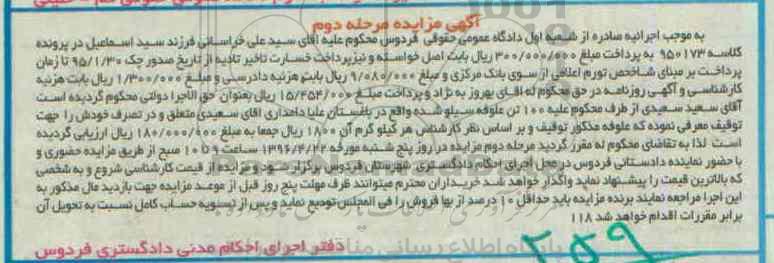 آگهی مزایده مرحله دوم
به موجب اجرائیه صادره از شعبه اول دادگاه عمومی حقوقی فردوس محکوم علیه آقای سید علی خراسانی فرزند سید اسماعیل در پرونده
کلاسه ۹۵۰۱۷۳ به پرداخت مبلغ ۳۰۰/۰۰۰/۰۰۰ ریال بابت اصل خواسته و نیز پرداخت خسارت تاخیر تادیه از تاریخ صدور چک ۹۵/۱/۳۰ تا زمان
پرداخت بر مبنای شاخص تورم اعلامی از سوی بانک مرکزی و مبلغ ۹/۰۸۰/۰۰۰ ریال بابت هزینه دادرسی و مبلغ ۱/۳۰۰/۰۰۰ ریال بابت هزینه
کارشناسی و آگهی روزنامه در حق محکوم له آقای بهروز به نژاد و پرداخت مبلغ ۱۵/۴۵۴/۰۰۰ ریال بعنوان حق الاجرا دولتی محکوم گردیده است
آقای سعید سعیدی از طرف محکوم علیه ۱۰۰ تن علوفه سیلو شده واقع در باغستان علیا دامداری آقای سعیدی متعلق و در تصرف خودش را جهت
توقیف معرفی نموده که علوفه مذکور توقیف و بر اساس نظر کارشناس هر کیلو گرم آن ۱۸۰۰ ریال جمعا به مبلغ ۱۸۰/۰۰۰/۰۰۰ ریال ارزیابی گردیده
است لذا به تقاضای محکوم له مقرر گردید مرحله دوم مزایده در روز پنج شنبه مورخه ۱۳۹۶/۴/۲۲ ساعت ۹ تا ۱۰ صبح از طریق مزایده حضوری و
با حضور نماینده دادستانی فردوس در محل اجرای احکام دادگستری شهرستان فردوس برگزار شود و مزایده از قیمت کارشناسی شروع و به شخصی
که بالاترین قیمت را پیشنهاد نماید واگذار خواهد شد خریداران محترم میتوانند ظرف مهلت پنج روز قبل از موعد مزایده جهت بازدید مال مذکور به
این اجرا مراجعه نمایند برنده مزایده باید حداقل ۱۰ درصد از بها فروش را فی المجلس تودیع نماید و پس از تسویه حساب کامل نسبت به تحویل آن
برابر مقررات اقدام خواهد شد ۱۱۸
دفتر اجرای احکام مدنی دادگستری فردوس
۲۵۹